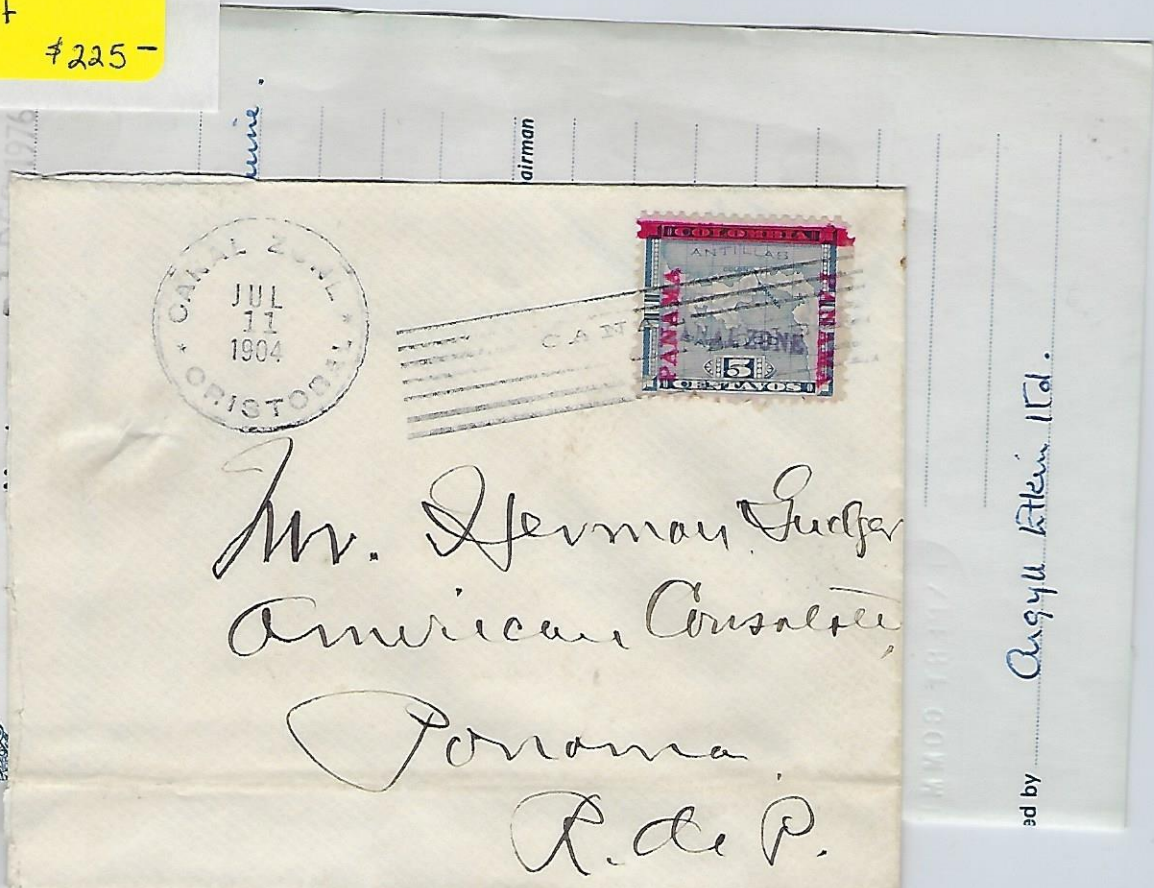 $225-
1976
airman
CANAL ZONE
JUL
11
1904
CRISTOBAL
CANAL
COLOMBIA
ANTILLAS
PANAMA
PANAMA
CANAL ZONE
5
CENTAVOS
Mr. Herman Gudger
American Consulate,
Panama.
R. de P.
ed by Argyll Etkin Ltd.